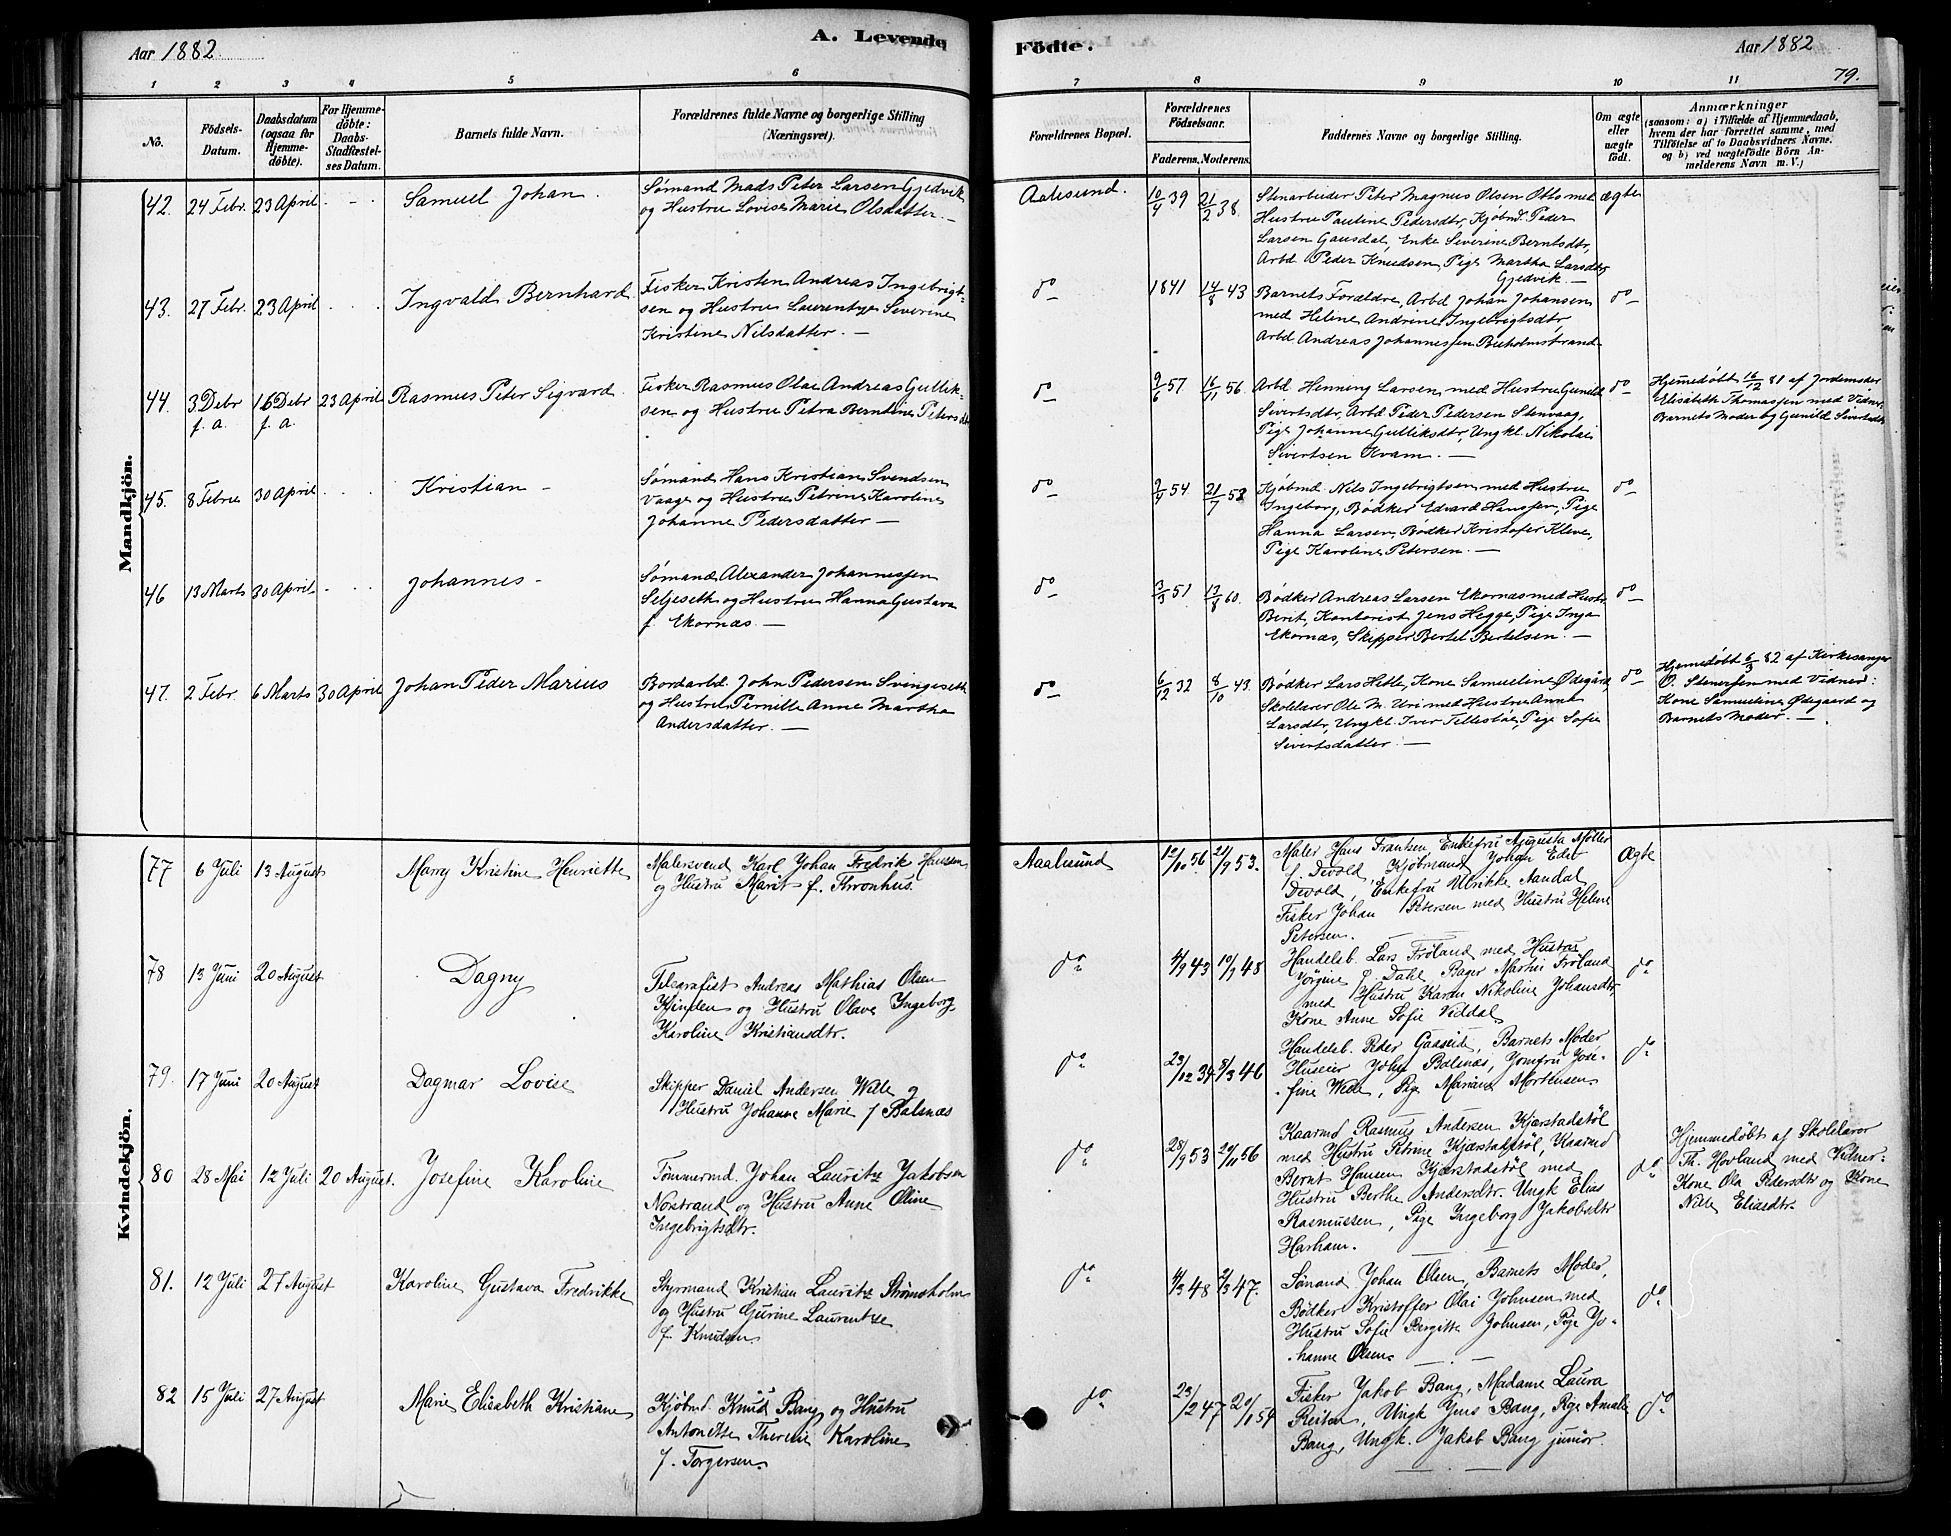 Aar 1882
A. Levende
Födte.
Aar 1882
79.
1 2 3 4 5 6 7 8 9 10 11
No.
Födsels-
Datum.
Daabsdatum
(ogsaa for
Hjemme-
döbte).
For Hjemme-
döbte:
Daabs-
Stadfæstel-
ses Datum.
Barnets fulde Navn.
Forældrenes fulde Navne og borgerlige Stilling
(Næringsvei).
Forældrenes Bopæl.
Forældrenes
Födselsaar.
Faderens. Moderens.
Faddernes Navne og borgerlige Stilling.
Om ægte
eller
uægte
födt.
Anmærkninger
(saasom: a) i Tilfælde af Hjemmedaab,
hvem der har forrettet samme, med
Tilföielse af to Daabsvidners Navne,
og b) ved uægtefödte Börn An-
melderens Navn m. V.)
Mandkjön.
42. 24 Febr. 23 April - - Samuel Johan
Sømand Mads Peter Larsen Gjedvik
og Hustru Lovise Marie Olsdatter. —
Aalesund. 10/4 39 21/2 38.
Stenarbeider Peter Magnus Olsen Otto med
Hustru Pauline Pedersdtr, Kjøbmd. Peder
Larsen Gausdal, Enke Severine Berntsdtr,
Arbd Peder Knudsen, Pige Martha Larsdtr
Gjedvik. —
ægte
43. 27 Febr. 23 April - - Ingvald Bernhard
Fisker Kristen Andreas Ingebrigt-
sen og Hustru Laurentze Severine
Kristine Nilsdatter. —
do 1841 14/8 43
Barnets Forældre, Arbd Johan Johansen
med Helene Andrine Ingebrigtsdtr,
Arbd Andreas Johannessen Buholmstrand
do
44. 3 Debr f. a. 16 Debr f. a. 23 April Rasmus Peter Sigvard
Fisker Rasmus Olai Andreas Gullik-
sen og Hustru Petra Berntine Petersdtr
do 9/6 57 16/11 56
Arbd Henning Larsen med Hustru Gunild
Sivertsdtr, Arbd Peder Pedersen Stenvaag,
Pige Johanne Gulliksdtr, Ungkl. Nikolai
Sivertsen Kvam. —
do
Hjemedøbt 16/12 81 af Jordemoder
Elisabeth Thomassen med Vidner
Barnets Moder og Gunild Sivertsdtr
45. 8 Febru 30 April - - Kristian —
Sømand Hans Kristian Svendsen
Vaage og Hustru Petrine Karoline
Johanne Pedersdatter —
do 2/4 54. 21/7 52
Kjøbmd. Nils Ingebrigtsen med Hustru
Ingeborg, Bødker Edvard Hanssen, Pige
Hanna Larsen, Bødker Kristofer Kleve,
Pige Karoline Petersen. —
do
46 13 Marts 30 April - - Johannes —
Sømand Alexander Johannessen
Seljeseth og Hustru Hanna Gustava
f. Ekornæs. —
do 3/3 51 13/8 60.
Bødker Andreas Larsen Ekornæs med Hustr
Berit, Kontorist Jens Hegge, Pige Inga
Ekornæs, Skipper Bertel Bertelsen. —
do
47. 2 Febr. 6 Marts 30 April Johan Peder Marius
Bordarbd. John Pedersen Svingeseth
og Hustru Pernille Anne Martha
Andersdatter. —
do 6/12 32 8/10 43.
Bødker Lars Hille, Kone Samueline Ødegård,
Skolelærer Ole M. Uri med Hustru Anna
Larsdtr, Ungkl. Iver Tellesbø, Pige Sofie
Sivertsdatter. —
do
Hjemedøbt 6/3 82 af Kirkesanger
O. Stenersen med Vidner:
Kone Samueline Ødegaard og
Barnets Moder. —
Kvindekjön.
77 6 Juli 13 August Marry Kristine Henriette
Malersvend Karl Johan Fredrik Hansen
og Hustru Marit f. Thronhus.
Aalesund 12/10 56. 21/9 53.
Maler Hans Frantzen, Enkefru Augusta Møller
f. Devold, Kjøbmand Johan Edv.
Devold, Enkefru Ulrikke Aandal
Fisker Johan Petersen med Hustru Helene
Petersen.
Ægte
78 13 Juni 20 August Dagny
Telegrafist Andreas Mathias Olsen
og Hustru Olave Ingeborg
Karoline Kristiansdtr.
do 4/9 43 10/9 48
Handelsb. Lars Frøland med Hustru
Jørgine f. Dahl, Bager Martin Frøland
med Hustru Karen Nikoline Johansdtr,
Kone Anne Sofie Viddal
do
79. 17 Juni 20 August Dagmar Lovise
Skipper Daniel Andersen Wille og
Hustru Johanne Marie f Balsnæs
do 23/12 34 8/3 46
Handelsb. Peder Gaaseide, Barnets Moder
Huseier John Bolsnæs, Jomfru Jose-
fine Wille, Pige Mariane Mortensen.
do
80 28 Mai 12 Juli 20 August. Josefine Karoline
Tømmermd. Johan Lauritz Jakobsen
Norstrand og Hustru Anne Oline
Ingebrigtsdtr.
do 28/9 53 20/11 56
Kaarmd Rasmus Andersen Kjærstadstøl
med Hustru Petrine Kjærstadstøl, Kaarmd
Bernt Hansen Kjærstadstøl med
Hustru Berthe Andersdtr. Ungk Elias
Rasmussen, Pige Ingeborg Jakobsdtr
Harham.
do
Hjemmedøbt af Skolelærer
Th. Hovland med Vidner.
Kone Ola Pedersdtr og Kone
Nille Eliasdtr.
81. 12 Juli 27 August Karoline Gustava Fredrikke
Styrmand Kristian Lauritz Strømsholm
og Hustru Gurine Laurentze
f. Knudsen
do 4/3 48 2/3 47.
Sømand Johan Olsen, Barnets Moder,
Bødker Kristoffer Olai Johnsen med
Hustru Sofie Bergitte Johnsen, Pige Jo-
hanne Olsen. —
do
82 15 Juli 27 August Marie Elisabeth Kristiane
Kjøbmd. Knud Bang og Hustru
Antonette Therese Karoline
f. Torgersen.
do 23/2 47 20/1 54
Fisker Jakob Bang, Madame Laura
Reiten, Ungk Jens Bang, Pige Amalie
Bang, Ungk. Jakob Bang junior.
do